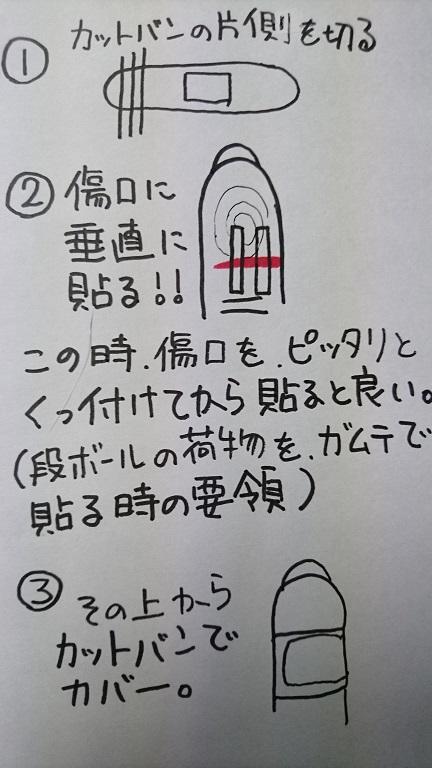 ① カットバンの片側を切る
② 傷口に
垂直に
貼る!!
この時、傷口を、ピッタリと
くっ付けてから貼ると良い。
(段ボールの荷物を、ガムテで
貼る時の要領)
③ その上から
カットバンで
カバー。